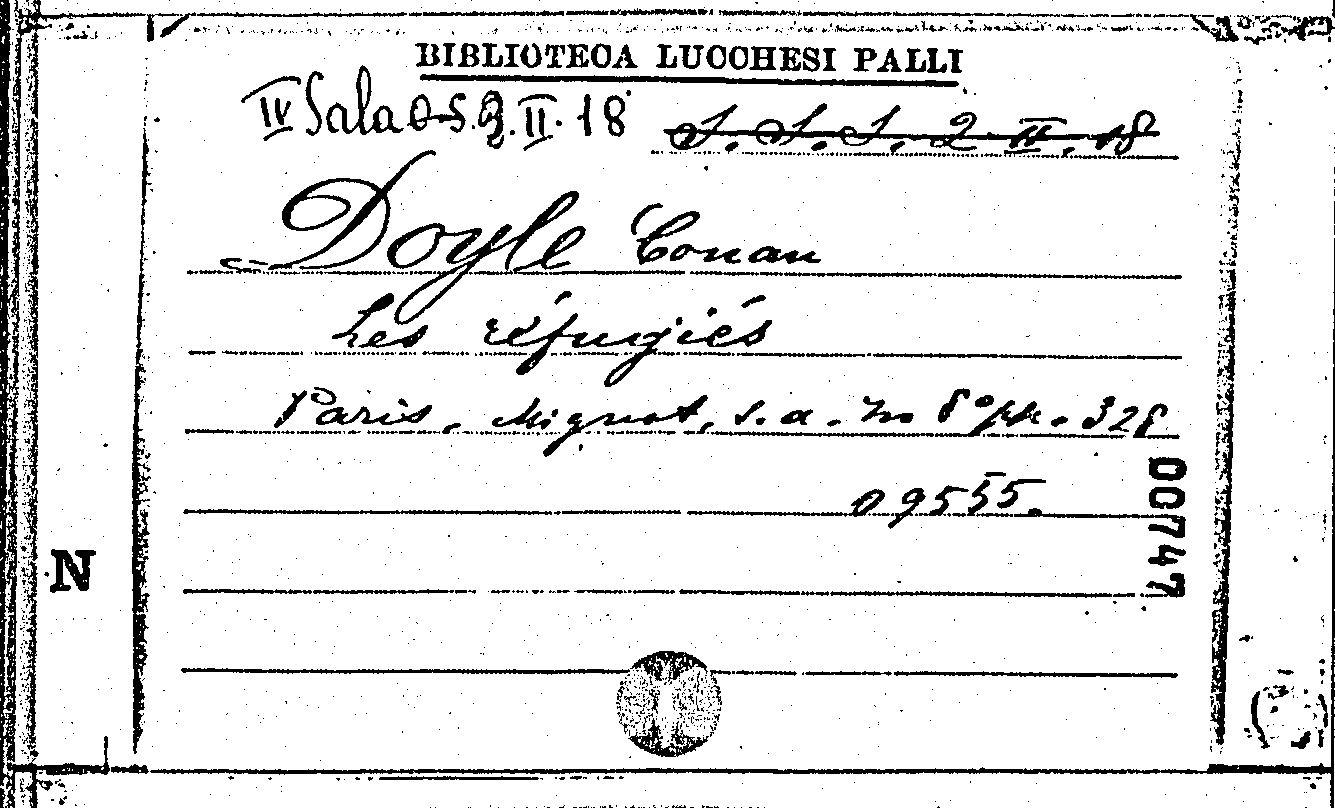 BIBLIOTECA LUCCHESI PALLI
IV Sala 2. II. 18 S. S. S. 2 II. 18
Doyle Conan
Les réfugiés
Paris, Mignot, s.a. in 8° pp. 328
09555.
00747
N